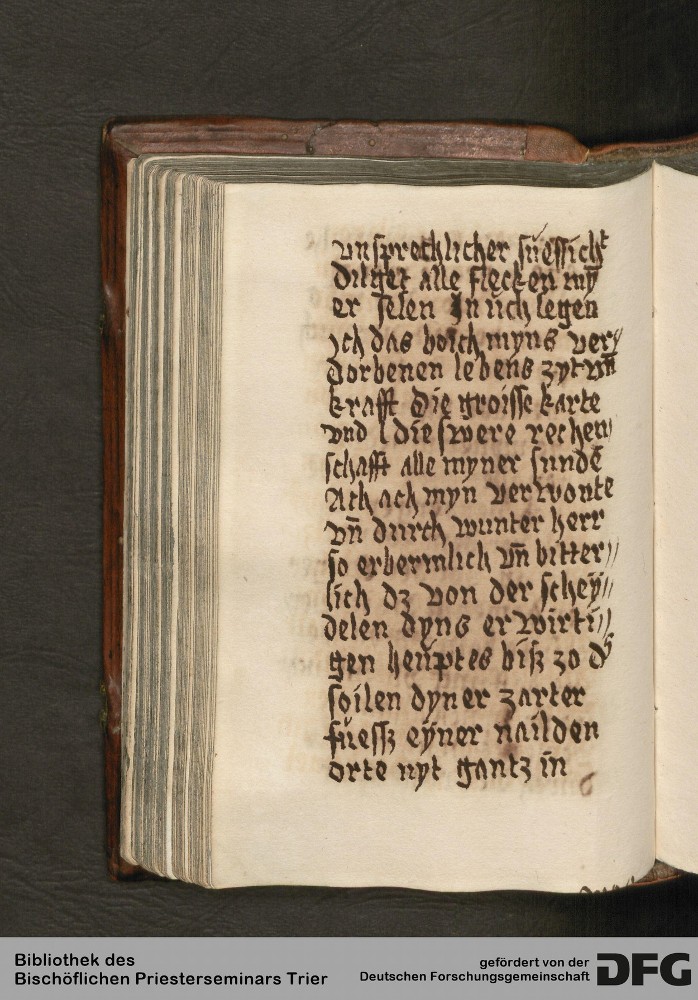 vnsprechlicher súessicht
Dilget alle flecken mÿ
er selen In uch legen
ich das boich myns ver//
dorbenen lebens zyt vñ
krafft Die groisse karte
vnd die swere rechen//
schafft alle myner sundē
Ach ach myn verwonte
vñ durch wunter herr
so erbermlich vñ bitter//
lich dz von der scheÿ//
delen dyns erwirti//
gen heuptes biß zo d'
soilen dyner zarter
fúeßz eÿner nailden
orte nyt gantz in
Bibliothek des
Bischöflichen Priesterseminars Trier
gefördert von der
Deutschen Forschungsgemeinschaft
DFG